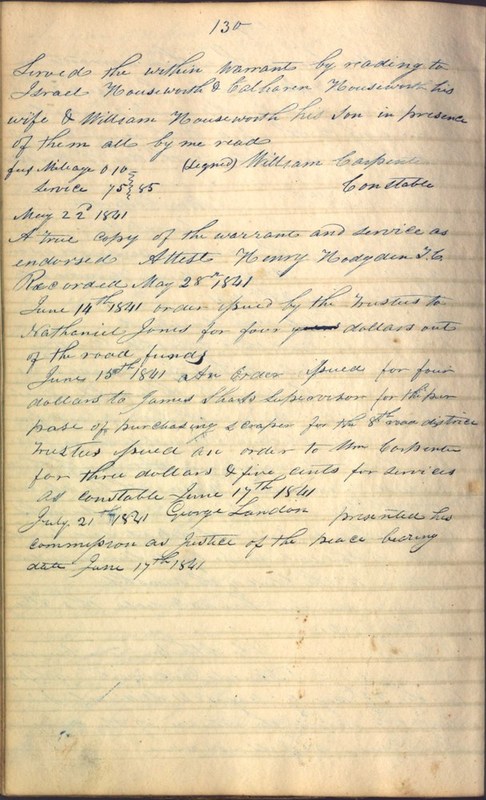 130
Served the within warrant by reading to
Israel Houseworth & Catharen Houseworth his
wife & William Houseworth his son in presence
of them all by me read
fees Mileage 0 10
(signed) William Carpenter
Service 75 85
Constable
May 22d 1841
A true copy of the warrant and service as
endorsed Attest Henry Hodgden T.C.
Recorded May 28th 1841
June 14th 1841 order issued by the trustees to
Nathaniel Jones for four dollars out
of the road funds
June 15th 1841 An order issued for four
dollars to James Supervisor for the pur
pose of purchasing scraper for the 8th road district
Trustees issued an order to Wm Carpenter
for three dollars & five cents for services
as constable June 17th 1841
July 21th 1841 George Landon presented his
commission as Justice of the peace bearing
date June 17th 1841